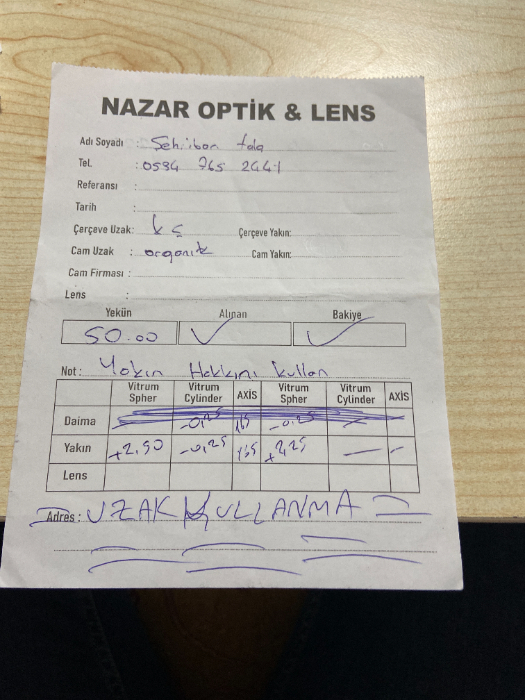 NAZAR OPTİK & LENS
Adı Soyadı : Sehriban
Tel. : 0534 765 2441
Referansı :
Tarih :
Çerçeve Uzak: Çerçeve Yakın:
Cam Uzak : organik Cam Yakın:
Cam Firması :
Lens :
Yekün Alınan Bakiye
50.00
Not : Yakın Hakkını kullan
Vitrum Spher Vitrum Cylinder AXİS Vitrum Spher Vitrum Cylinder AXİS
Daima -0,25 -0,25
Yakın +2.50 -0,25 +2,25 —
Lens
Adres : UZAK KULLANMA